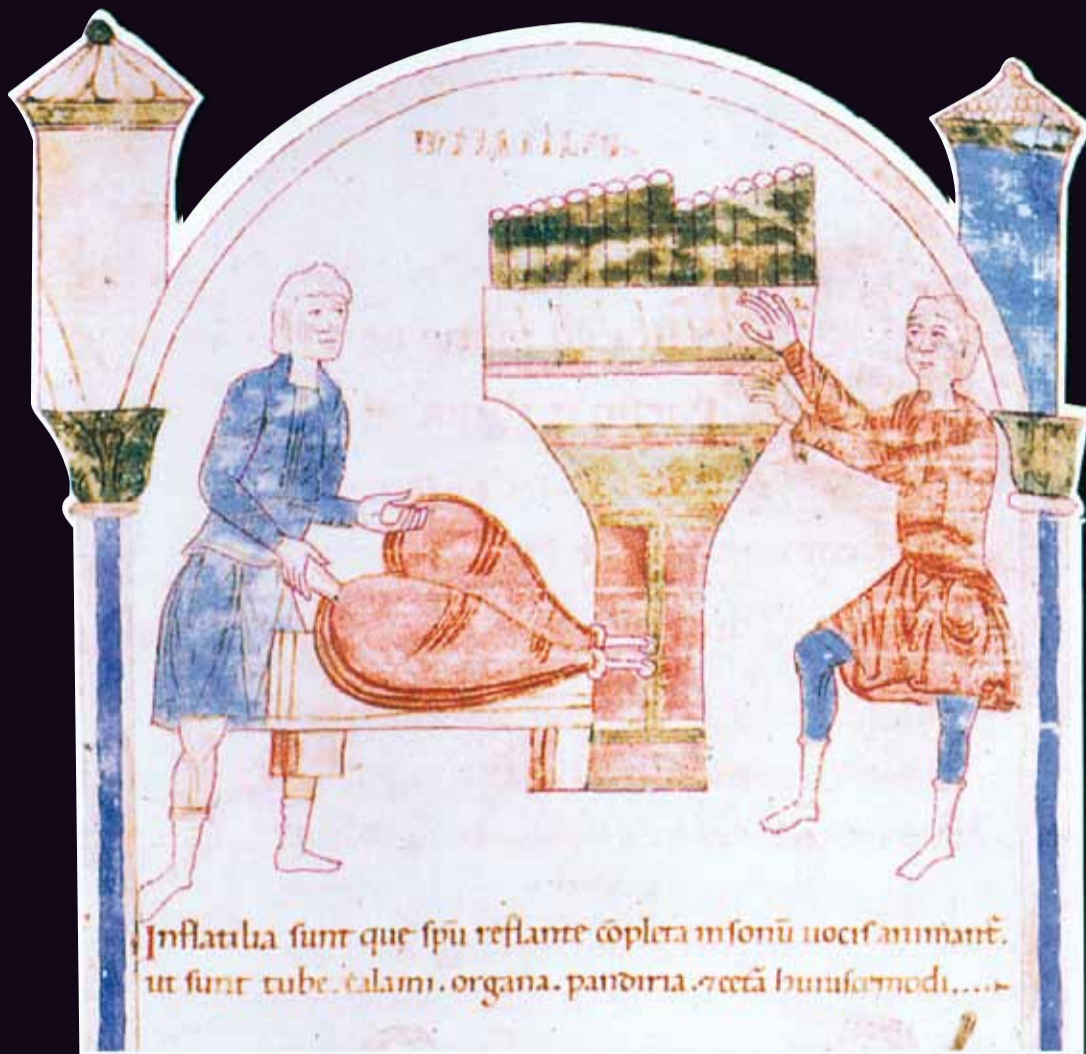 Inflatilia sunt que spū reflante cōpleta insonū uocis animant̄.
ut sunt tube. calami. organa. pandiria. ⁊ cetā huiuscemodi....